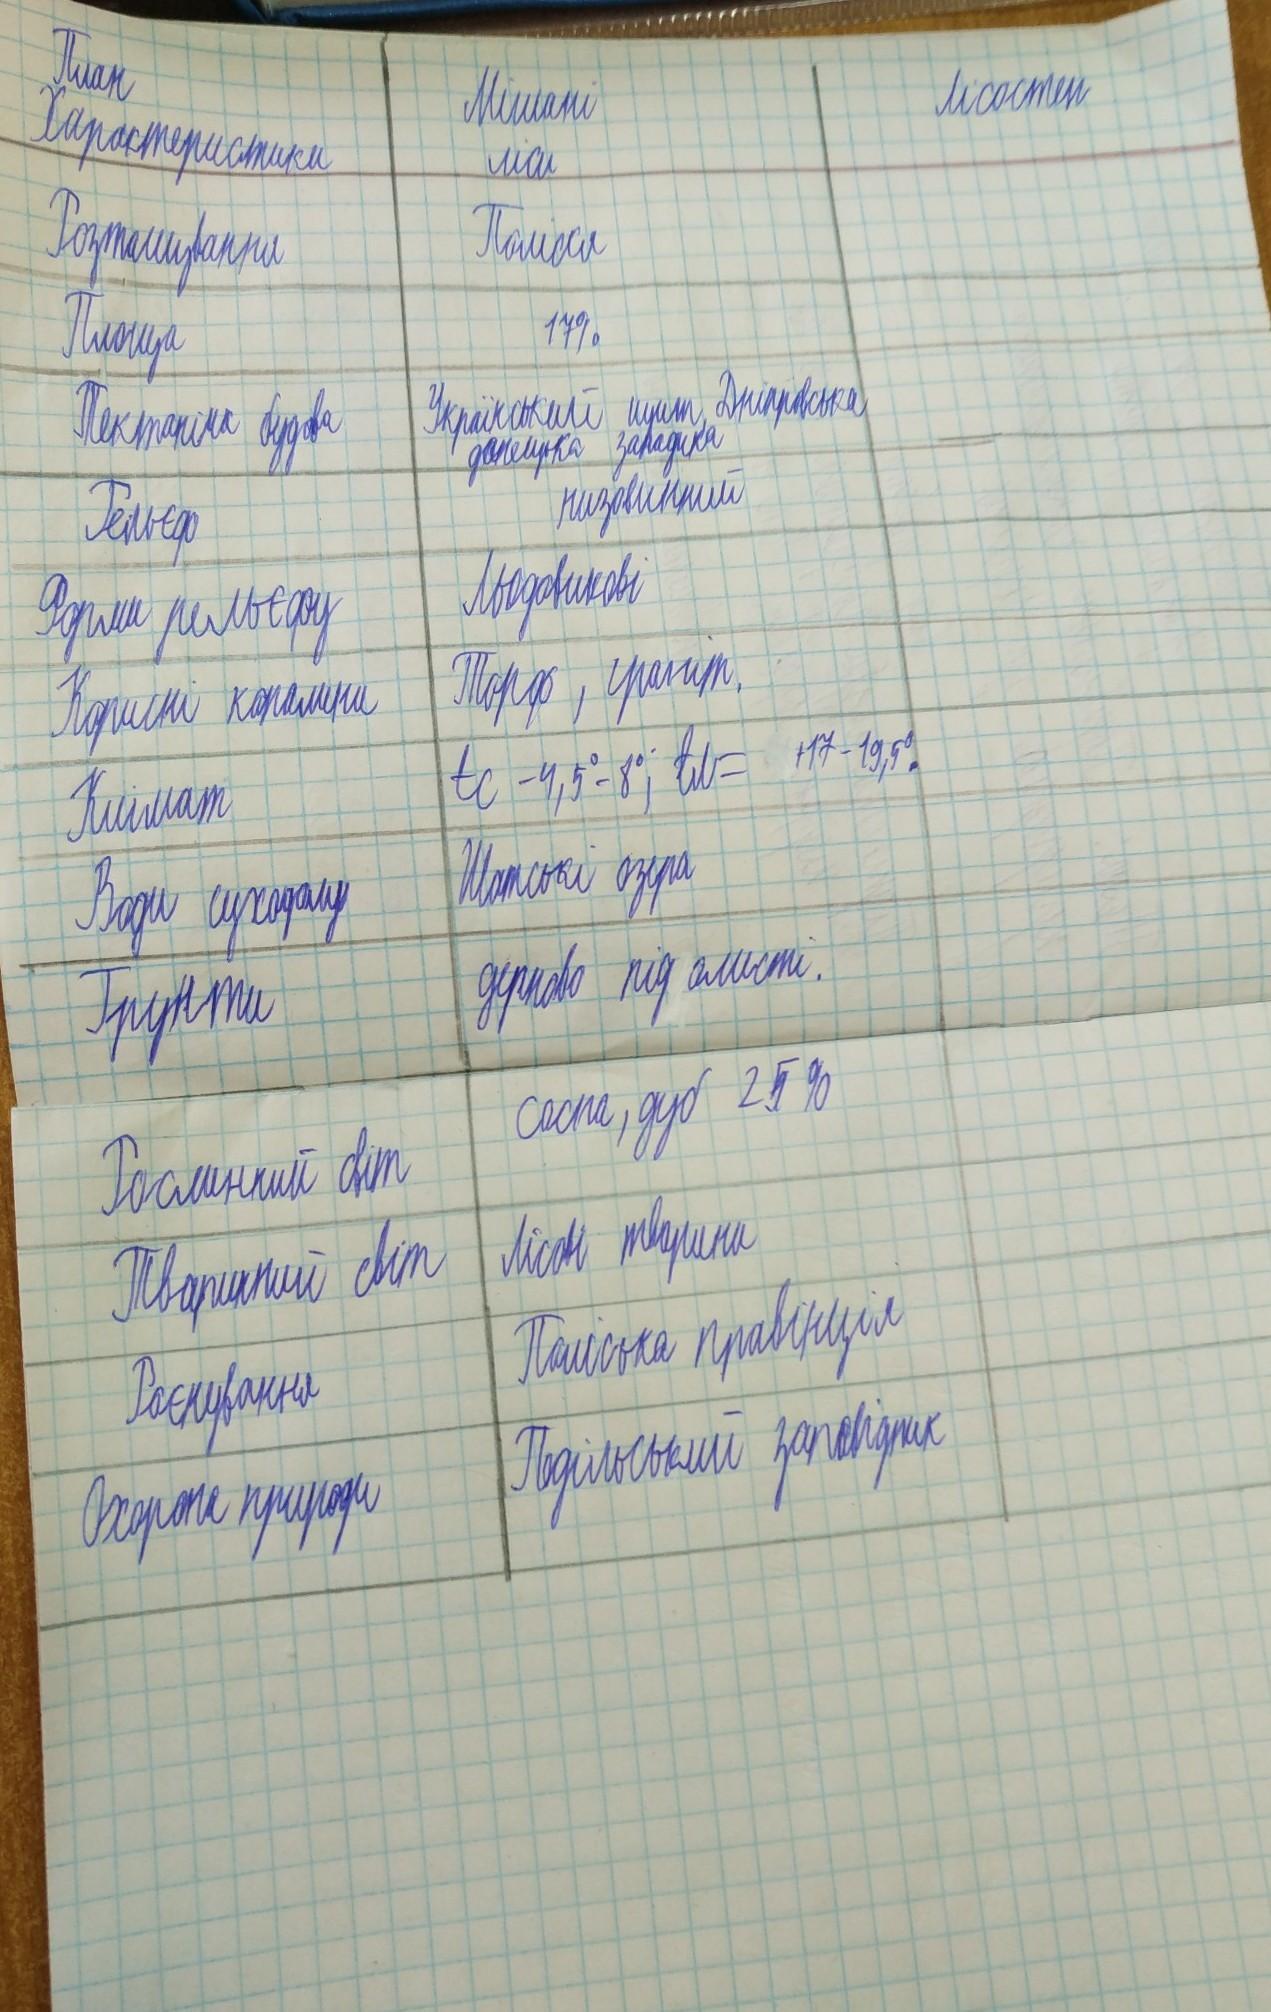 План
Характеристики
Мішані
ліси
Лісостеп
Розташування
Полісся
Площа
17%
Тектонічна будова
Український щит, Дніпровська
донецька западина
Рельєф
низовинний
Форми рельєфу
Льодовикові
Корисні копалини
Торф, граніт.
Клімат
tс -4,5°-8°; tл= +17-19,5°.
Води суходолу
Шатські озера
Грунти
дерново підзолисті.
Рослинний світ
сосна, дуб 25%
Тваринний світ
Лісові тварини
Раєнування
Поліська правінція
Охорона природи
Подільський заповідник